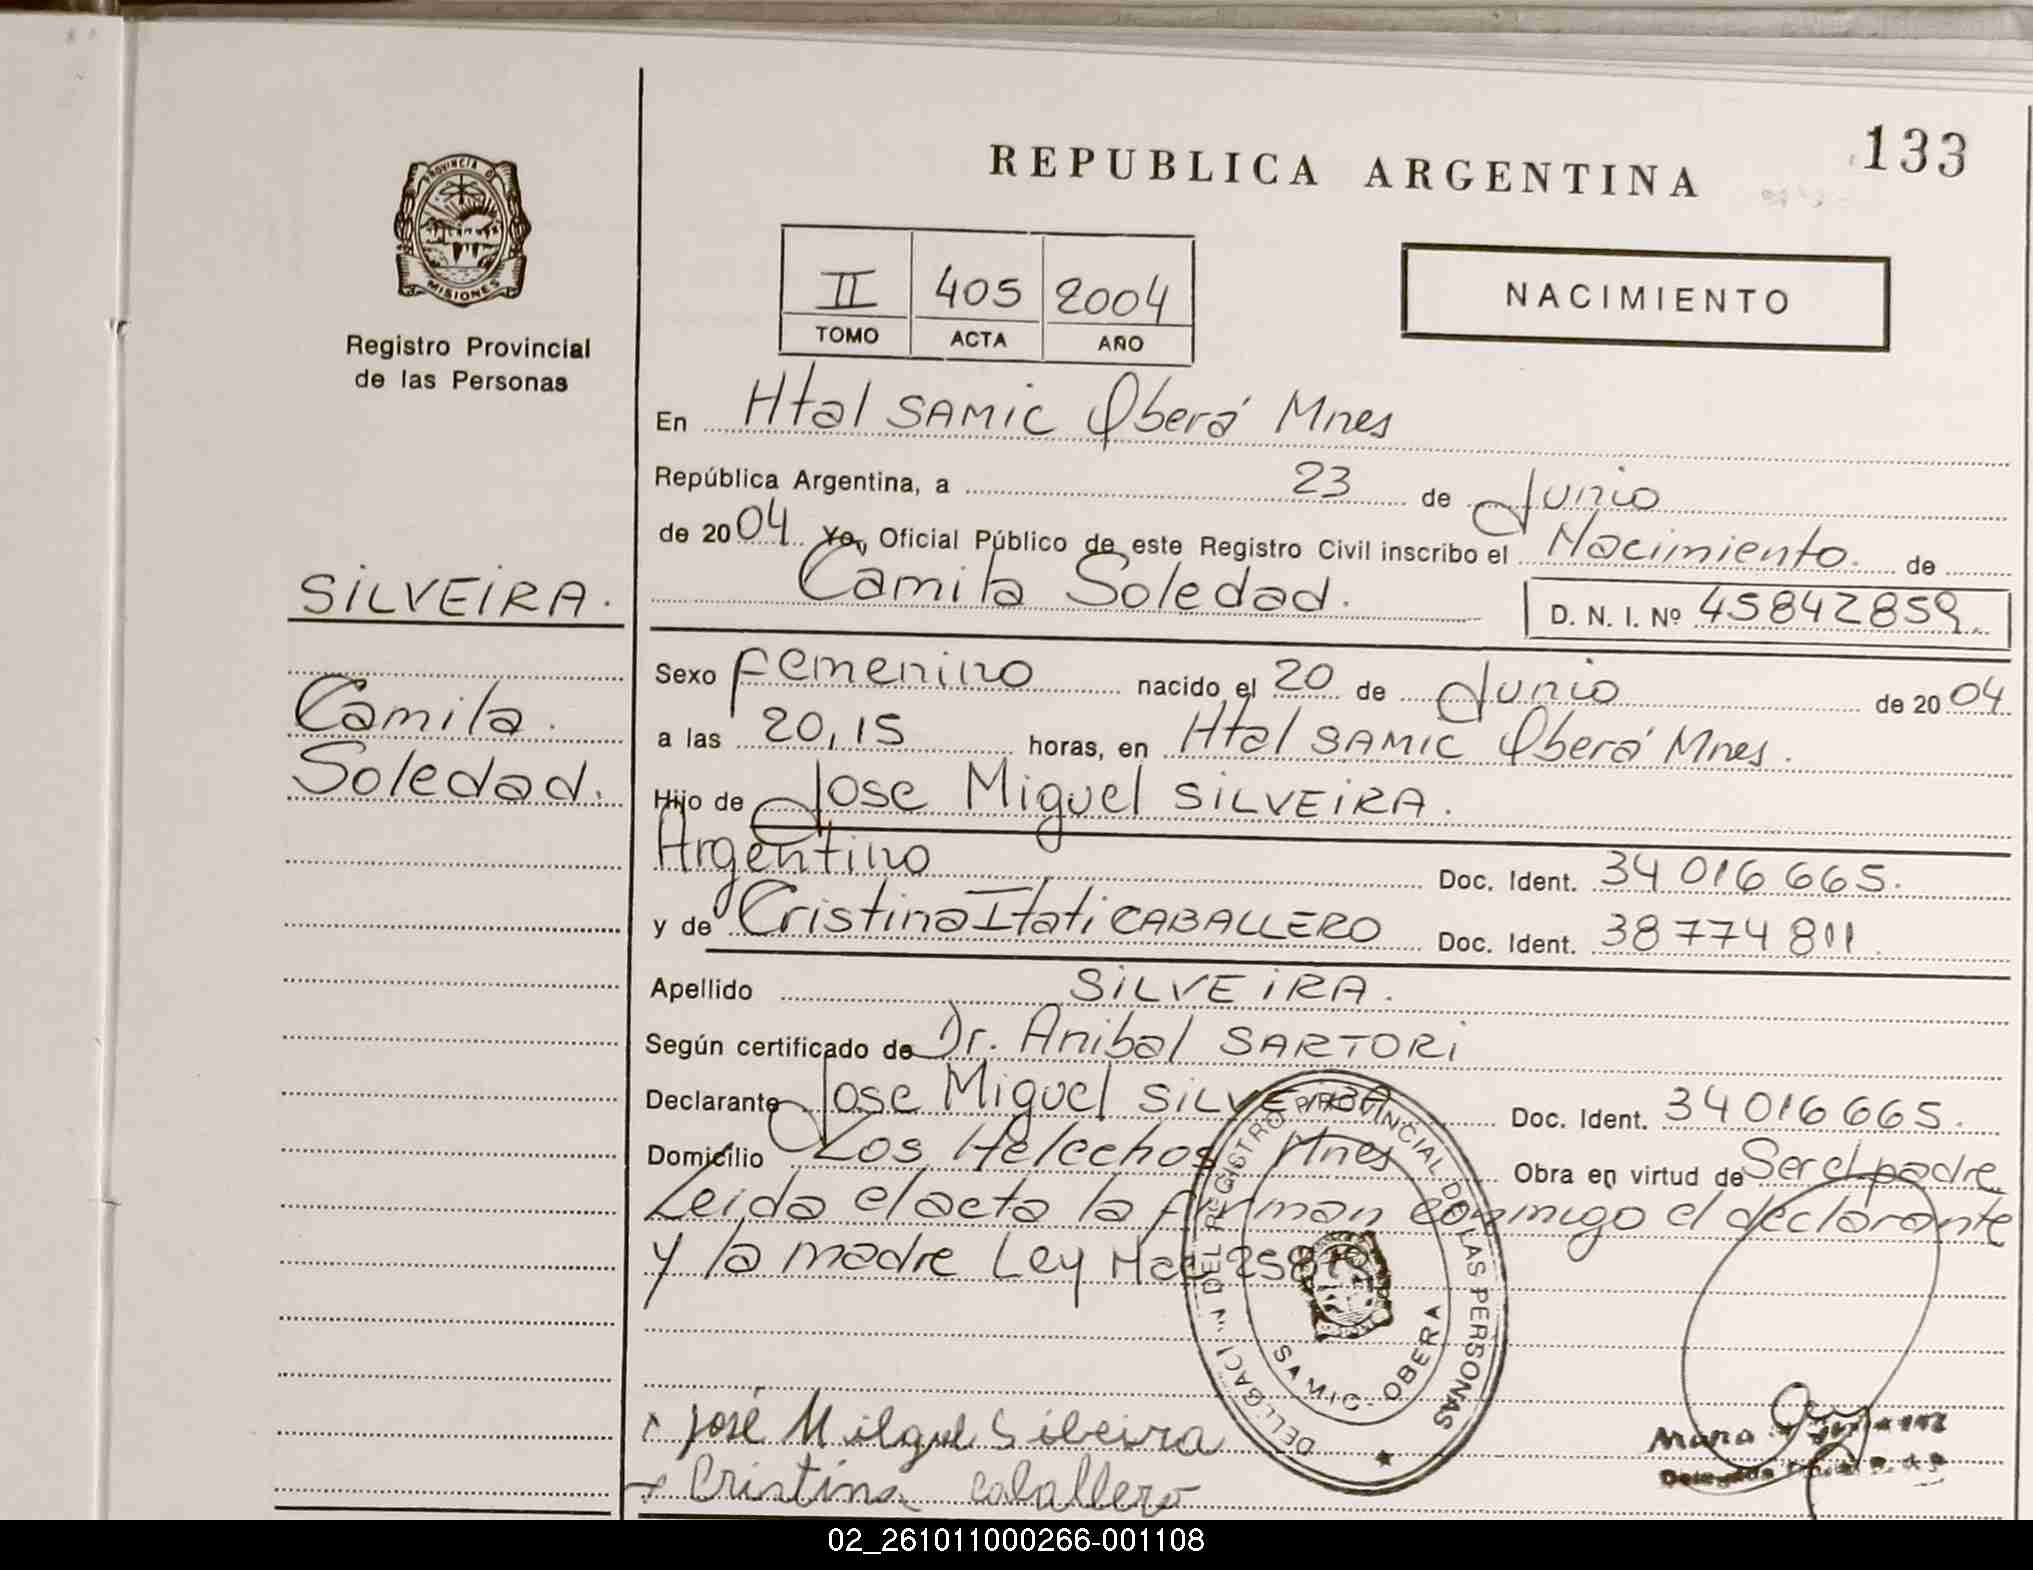 133
REPUBLICA ARGENTINA
PROVINCIA DE
MISIONES
Registro Provincial
de las Personas
II 405 2004
TOMO ACTA AÑO
NACIMIENTO
En Htal SAMIC Oberá Mnes
República Argentina, a 23 de Junio
de 2004 Yo, Oficial Público de este Registro Civil inscribo el Nacimiento de
Camila Soledad.
D. N. I. Nº 45842859
SILVEIRA.
Camila
Soledad.
Sexo Femenino nacido el 20 de Junio de 2004
a las 20,15 horas, en Htal SAMIC Oberá Mnes.
Hijo de Jose Miguel SILVEIRA.
Argentino Doc. Ident. 34 016 665.
y de Cristina Itati CABALLERO Doc. Ident. 38 774 811.
Apellido SILVEIRA.
Según certificado de Dr. Anibal SARTORI
Declarante Jose Miguel SILVEIRA Doc. Ident. 34 016 665.
Domicilio Los Helechos Mnes Obra en virtud de Ser el padre
Leida el acta la firman conmigo el declarante
y la madre Ley
DEL REGISTRO PROVINCIAL DE LAS PERSONAS
SAMIC - OBERA
José Milguel Sibeira
Cristina caballero
02_261011000266-001108